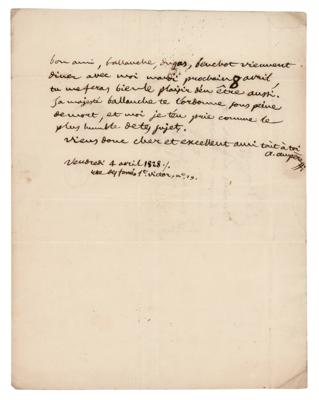 bon ami, ballanche, dugas, bouchot viennent
diner avec moi mardi prochain 8 avril,
tu me feras bien le plaisir d'en être aussi.
Sa majesté ballanche te l'ordonne sous peine
de mort, et moi je t'en prie comme le
plus humble de tes sujets.
Viens donc cher et excellent ami tout à toi
a. ampère
Vendredi 4 avril 1828 ./.
rue des fossés St. victor, no. 19.